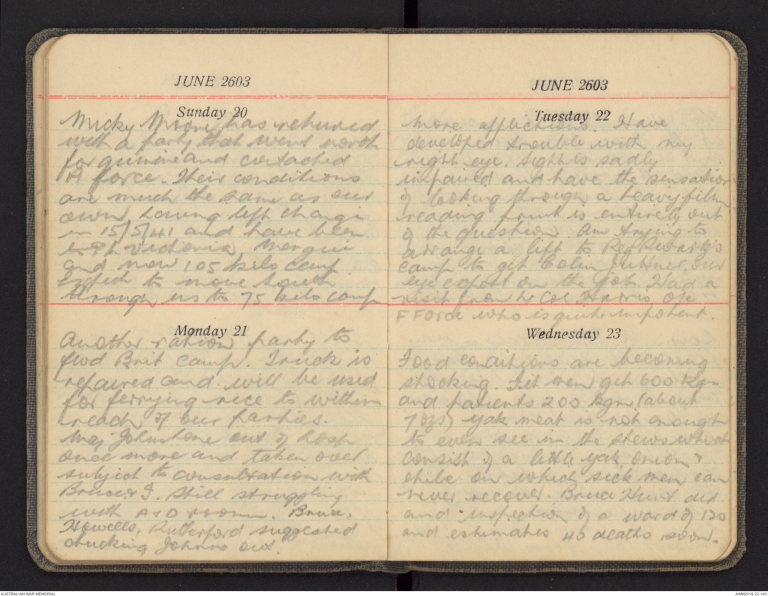 JUNE 2603
Sunday 20
Micky has returned
with a party that went north
for quinine and contacted
A force. Their conditions
are much the same as our
own having left Changi
in 15/5/41 and have been
in Pt Victoria, Mergui
and now 105 kilo camp
Expect to move south
through us to 75 kilo camp
Monday 21
Another ration party to
flood Brit camp. Truck is
repaired and will be used
for ferrying rice to within
reach of our parties.
Maj Johnstone out of hosp
once more and taken over
subject to consultation with
Bruce & I. Still struggling
with A & D room. Bruce,
Howells, Rutherford suggested
chucking Johnno out.
JUNE 2603
Tuesday 22
More afflictions. Have
developed trouble with my
right eye. Sight is sadly
impaired and have the sensation
of looking through a heavy film
reading print is entirely out
of the question. Am trying to
arrange a lift to
camp to get Colin Juttner, our
eye expert on the job. Had a
visit from Lt Col Harris O/c
F Force who is quite impotent.
Wednesday 23
Food conditions are becoming
shocking. Fit men get 600 Kgm
and patients 200 kgm (about
7 ozs) yak meat is not enough
to even see in the stews which
consist of a little yak onion &
chile on which sick men can
never recover. Bruce Hunt did
and inspection of a ward of 120
and estimates 40 deaths soon.
AUSTRALIAN WAR MEMORIAL